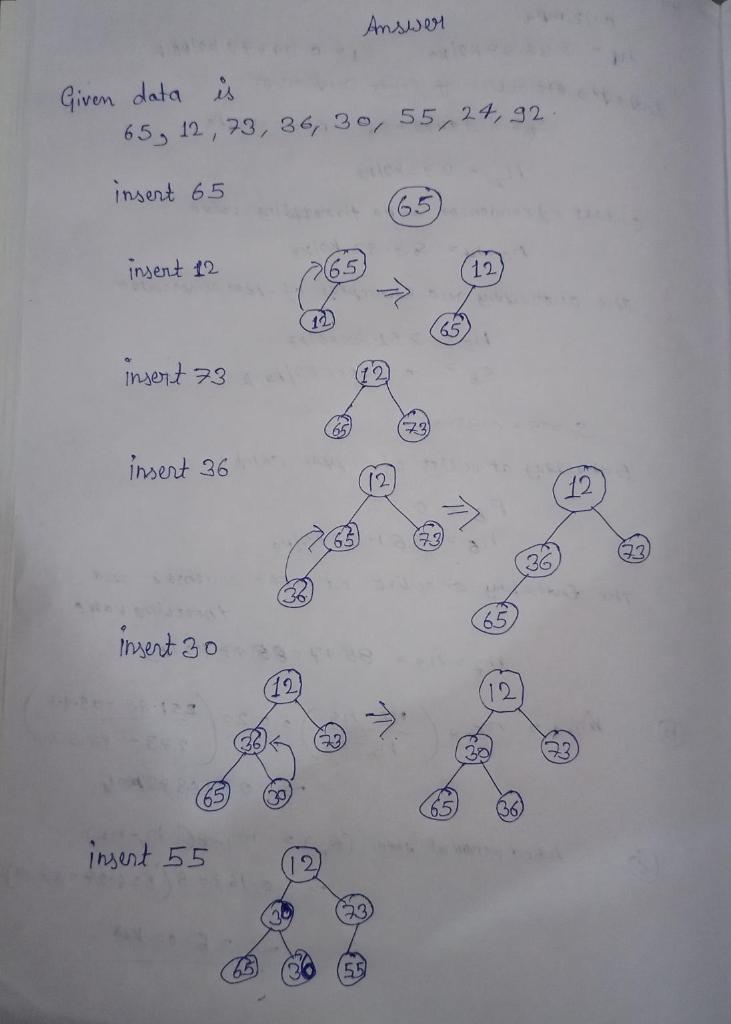 Answer
Given data is
65, 12, 73, 36, 30, 55, 24, 92
insert 65
65
insert 12
65 ⇒ 12
12 65
insert 73
12
65 73
insert 36
12 ⇒ 12
65 73 36 73
36 65
insert 30
12 ⇒ 12
36 73 30 73
65 30 65 36
insert 55
12
30 73
65 55